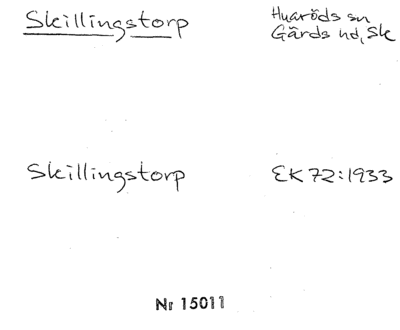 Skillingstorp
Huaröds sn
Gärds hd, Sk
Skillingstorp
EK 72:1933
Nr 15011